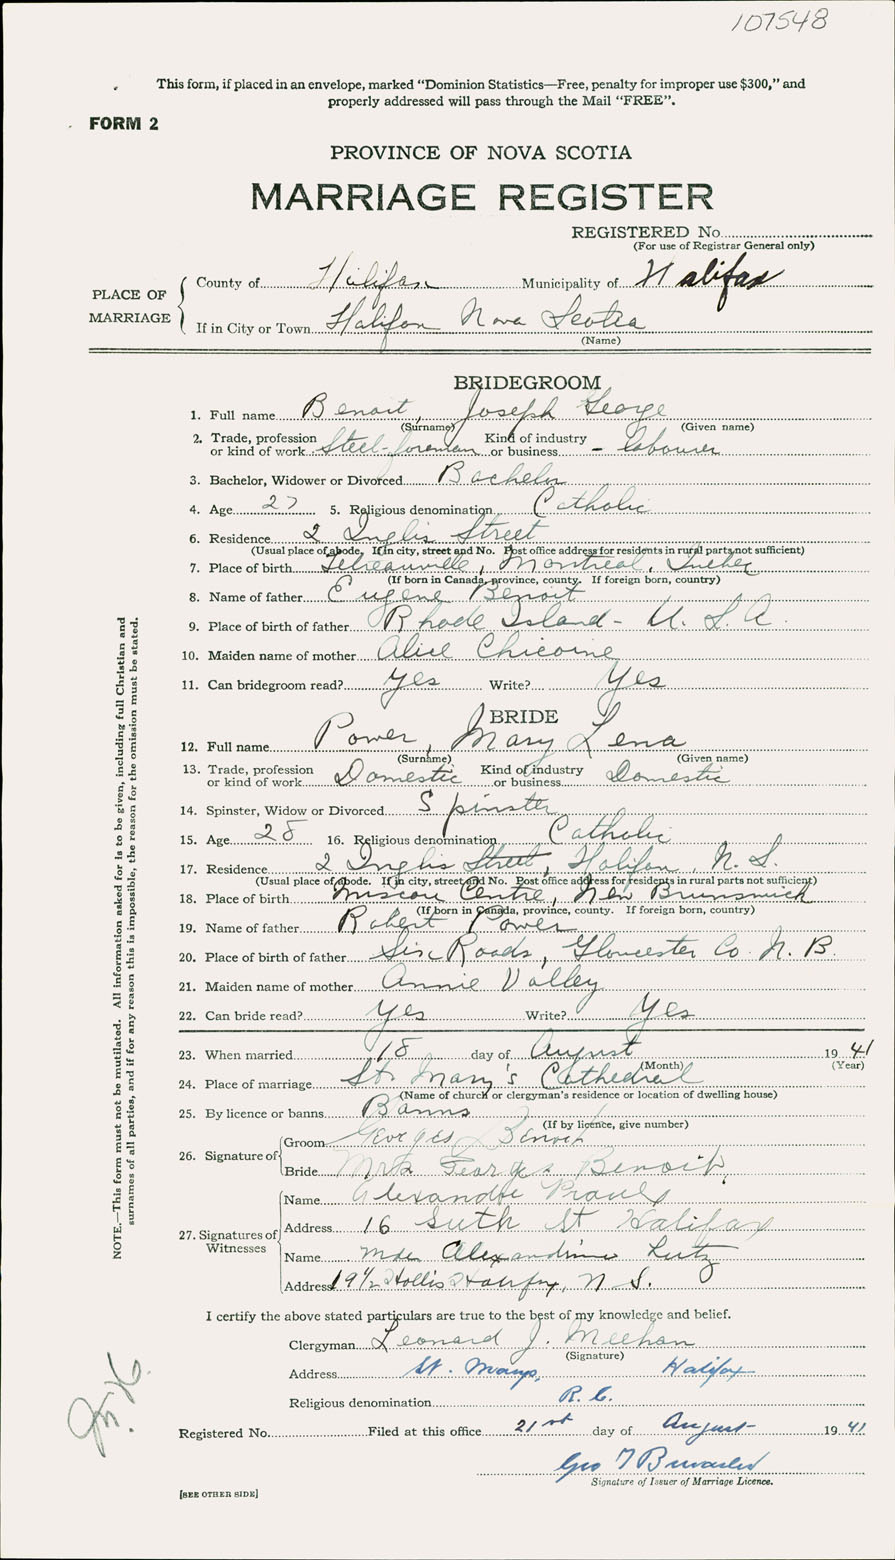 107548
This form, if placed in an envelope, marked “Dominion Statistics—Free, penalty for improper use $300,” and
properly addressed will pass through the Mail “FREE”.
FORM 2
PROVINCE OF NOVA SCOTIA
MARRIAGE REGISTER
REGISTERED No.
(For use of Registrar General only)
PLACE OF MARRIAGE
County of Halifax Municipality of Halifax
If in City or Town Halifax Nova Scotia
(Name)
BRIDEGROOM
1. Full name Benoit, Joseph George
(Surname) (Given name)
2. Trade, profession or kind of work Steel-foreman Kind of industry or business - labourer
3. Bachelor, Widower or Divorced Bachelor
4. Age 27 5. Religious denomination Catholic
6. Residence 2 Inglis Street
(Usual place of abode. If in city, street and No. Post office address for residents in rural parts not sufficient)
7. Place of birth Tetreauville, Montreal, Quebec
(If born in Canada, province, county. If foreign born, country)
8. Name of father Eugene Benoit
9. Place of birth of father Rhode Island - U. S. A.
10. Maiden name of mother Alice Chicoine
11. Can bridegroom read? Yes Write? Yes
BRIDE
12. Full name Power, Mary Lena
(Surname) (Given name)
13. Trade, profession or kind of work Domestic Kind of industry or business Domestic
14. Spinster, Widow or Divorced Spinster
15. Age 28 16. Religious denomination Catholic
17. Residence 2 Inglis Street, Halifax, N. S.
(Usual place of abode. If in city, street and No. Post office address for residents in rural parts not sufficient)
18. Place of birth Miscou Centre, New Brunswick
(If born in Canada, province, county. If foreign born, country)
19. Name of father Robert Power
20. Place of birth of father Six Roads, Gloucester Co. N. B.
21. Maiden name of mother Annie Valley
22. Can bride read? Yes Write? Yes
23. When married 18 day of August 1941
(Month) (Year)
24. Place of marriage St. Mary's Cathedral
(Name of church or clergyman's residence or location of dwelling house)
25. By licence or banns Banns
(If by licence, give number)
26. Signature of Groom Georges Benoit
Bride Mrs Georges Benoit
27. Signatures of Witnesses Name Alexandre
Address 16 South St Halifax
Name Mde Alexandrine Lutz
Address 19½ Hollis Halifax, N. S.
I certify the above stated particulars are true to the best of my knowledge and belief.
Clergyman Leonard J. Meehan
(Signature)
Address St. Marys, Halifax
Religious denomination R. C.
Registered No. Filed at this office 21st day of August 1941
Geo
Signature of Issuer of Marriage Licence.
[SEE OTHER SIDE]
NOTE.—This form must not be mutilated. All information asked for is to be given, including full Christian and
surnames of all parties, and if for any reason this is impossible, the reason for the omission must be stated.